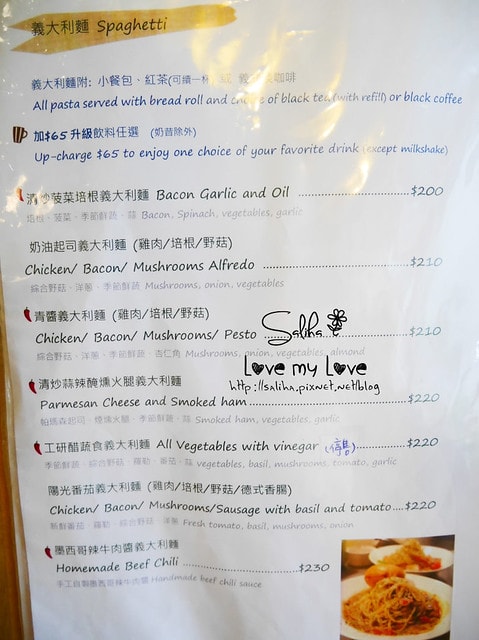 義大利麵 Spaghetti
義大利麵附: 小餐包、紅茶(可續一杯) 或 咖啡
All pasta served with bread roll and choice of black tea (with refill) or black coffee
加$65 升級飲料任選 (奶昔除外)
Up-charge $65 to enjoy one choice of your favorite drink (except milkshake)
清炒菠菜培根義大利麵 Bacon Garlic and Oil ........................$200
培根、菠菜、季節鮮蔬、蒜 Bacon, Spinach, vegetables, garlic
奶油起司義大利麵 (雞肉/培根/野菇)
Chicken/ Bacon/ Mushrooms Alfredo ........................$210
綜合野菇、洋蔥、季節鮮蔬 Mushrooms, onion, vegetables
青醬義大利麵 (雞肉/培根/野菇)
Chicken/ Bacon/ Mushrooms/ Pesto ........................$210
綜合野菇、洋蔥、季節鮮蔬、杏仁角 Mushrooms, onion, vegetables, almond
Saliha
Love my Love
http://saliha.pixnet.net/blog
清炒蒜辣醃燻火腿義大利麵
Parmesan Cheese and Smoked ham........................$220
帕瑪森起司、煙燻火腿、季節鮮蔬、蒜 Smoked ham, vegetables, garlic
工研醋蔬食義大利麵 All Vegetables with vinegar (停售)............$220
季節鮮蔬、綜合野菇、羅勒、番茄、蒜 vegetables, basil, mushrooms, tomato, garlic
陽光番茄義大利麵 (雞肉/培根/野菇/德式香腸)
Chicken/ Bacon/ Mushrooms/Sausage with basil and tomato....$220
新鮮番茄、羅勒、綜合野菇、洋蔥 Fresh tomato, basil, mushrooms, onion
墨西哥辣牛肉醬義大利麵
Homemade Beef Chili ........................$230
手工自製墨西哥辣牛肉醬 Handmade beef chili sauce